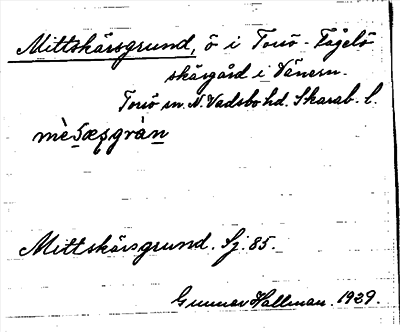 Mittskärsgrund, ö i Torsö-Fågelö
skärgård i Vänern.
Torsö sn. N. Vadsbo hd. Skarab. l.
Mittskärsgrund. Sj. 85.
Gunnar Hallman. 1929.